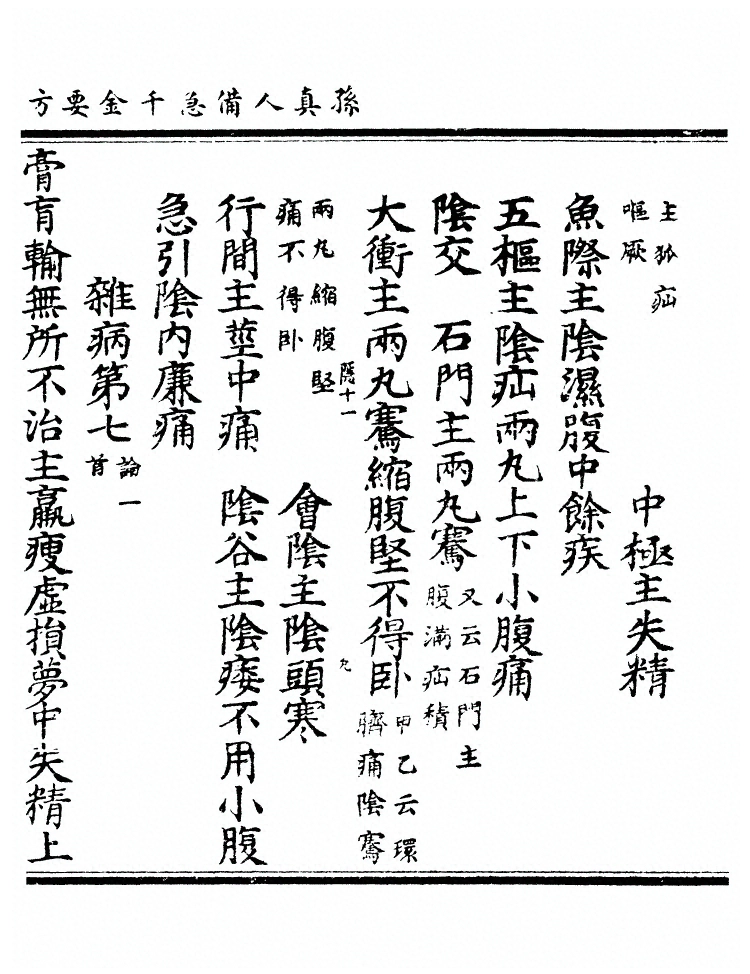 孫真人備急千金要方
主狐疝
嘔厥　中極主失精
魚際主陰濕腹中餘疾
五樞主陰疝兩丸上下小腹痛
陰交　石門主兩丸騫又云石門主
腹滿疝積
大衝主兩丸騫縮腹堅不得卧甲乙云環
臍痛陰騫
隱十一
九
兩丸縮腹堅
痛不得卧　會陰主陰頭寒
行間主莖中痛　陰谷主陰痿不用小腹
急引陰內廉痛
雜病第七論一
首
膏肓輸無所不治主羸瘦虛損夢中失精上